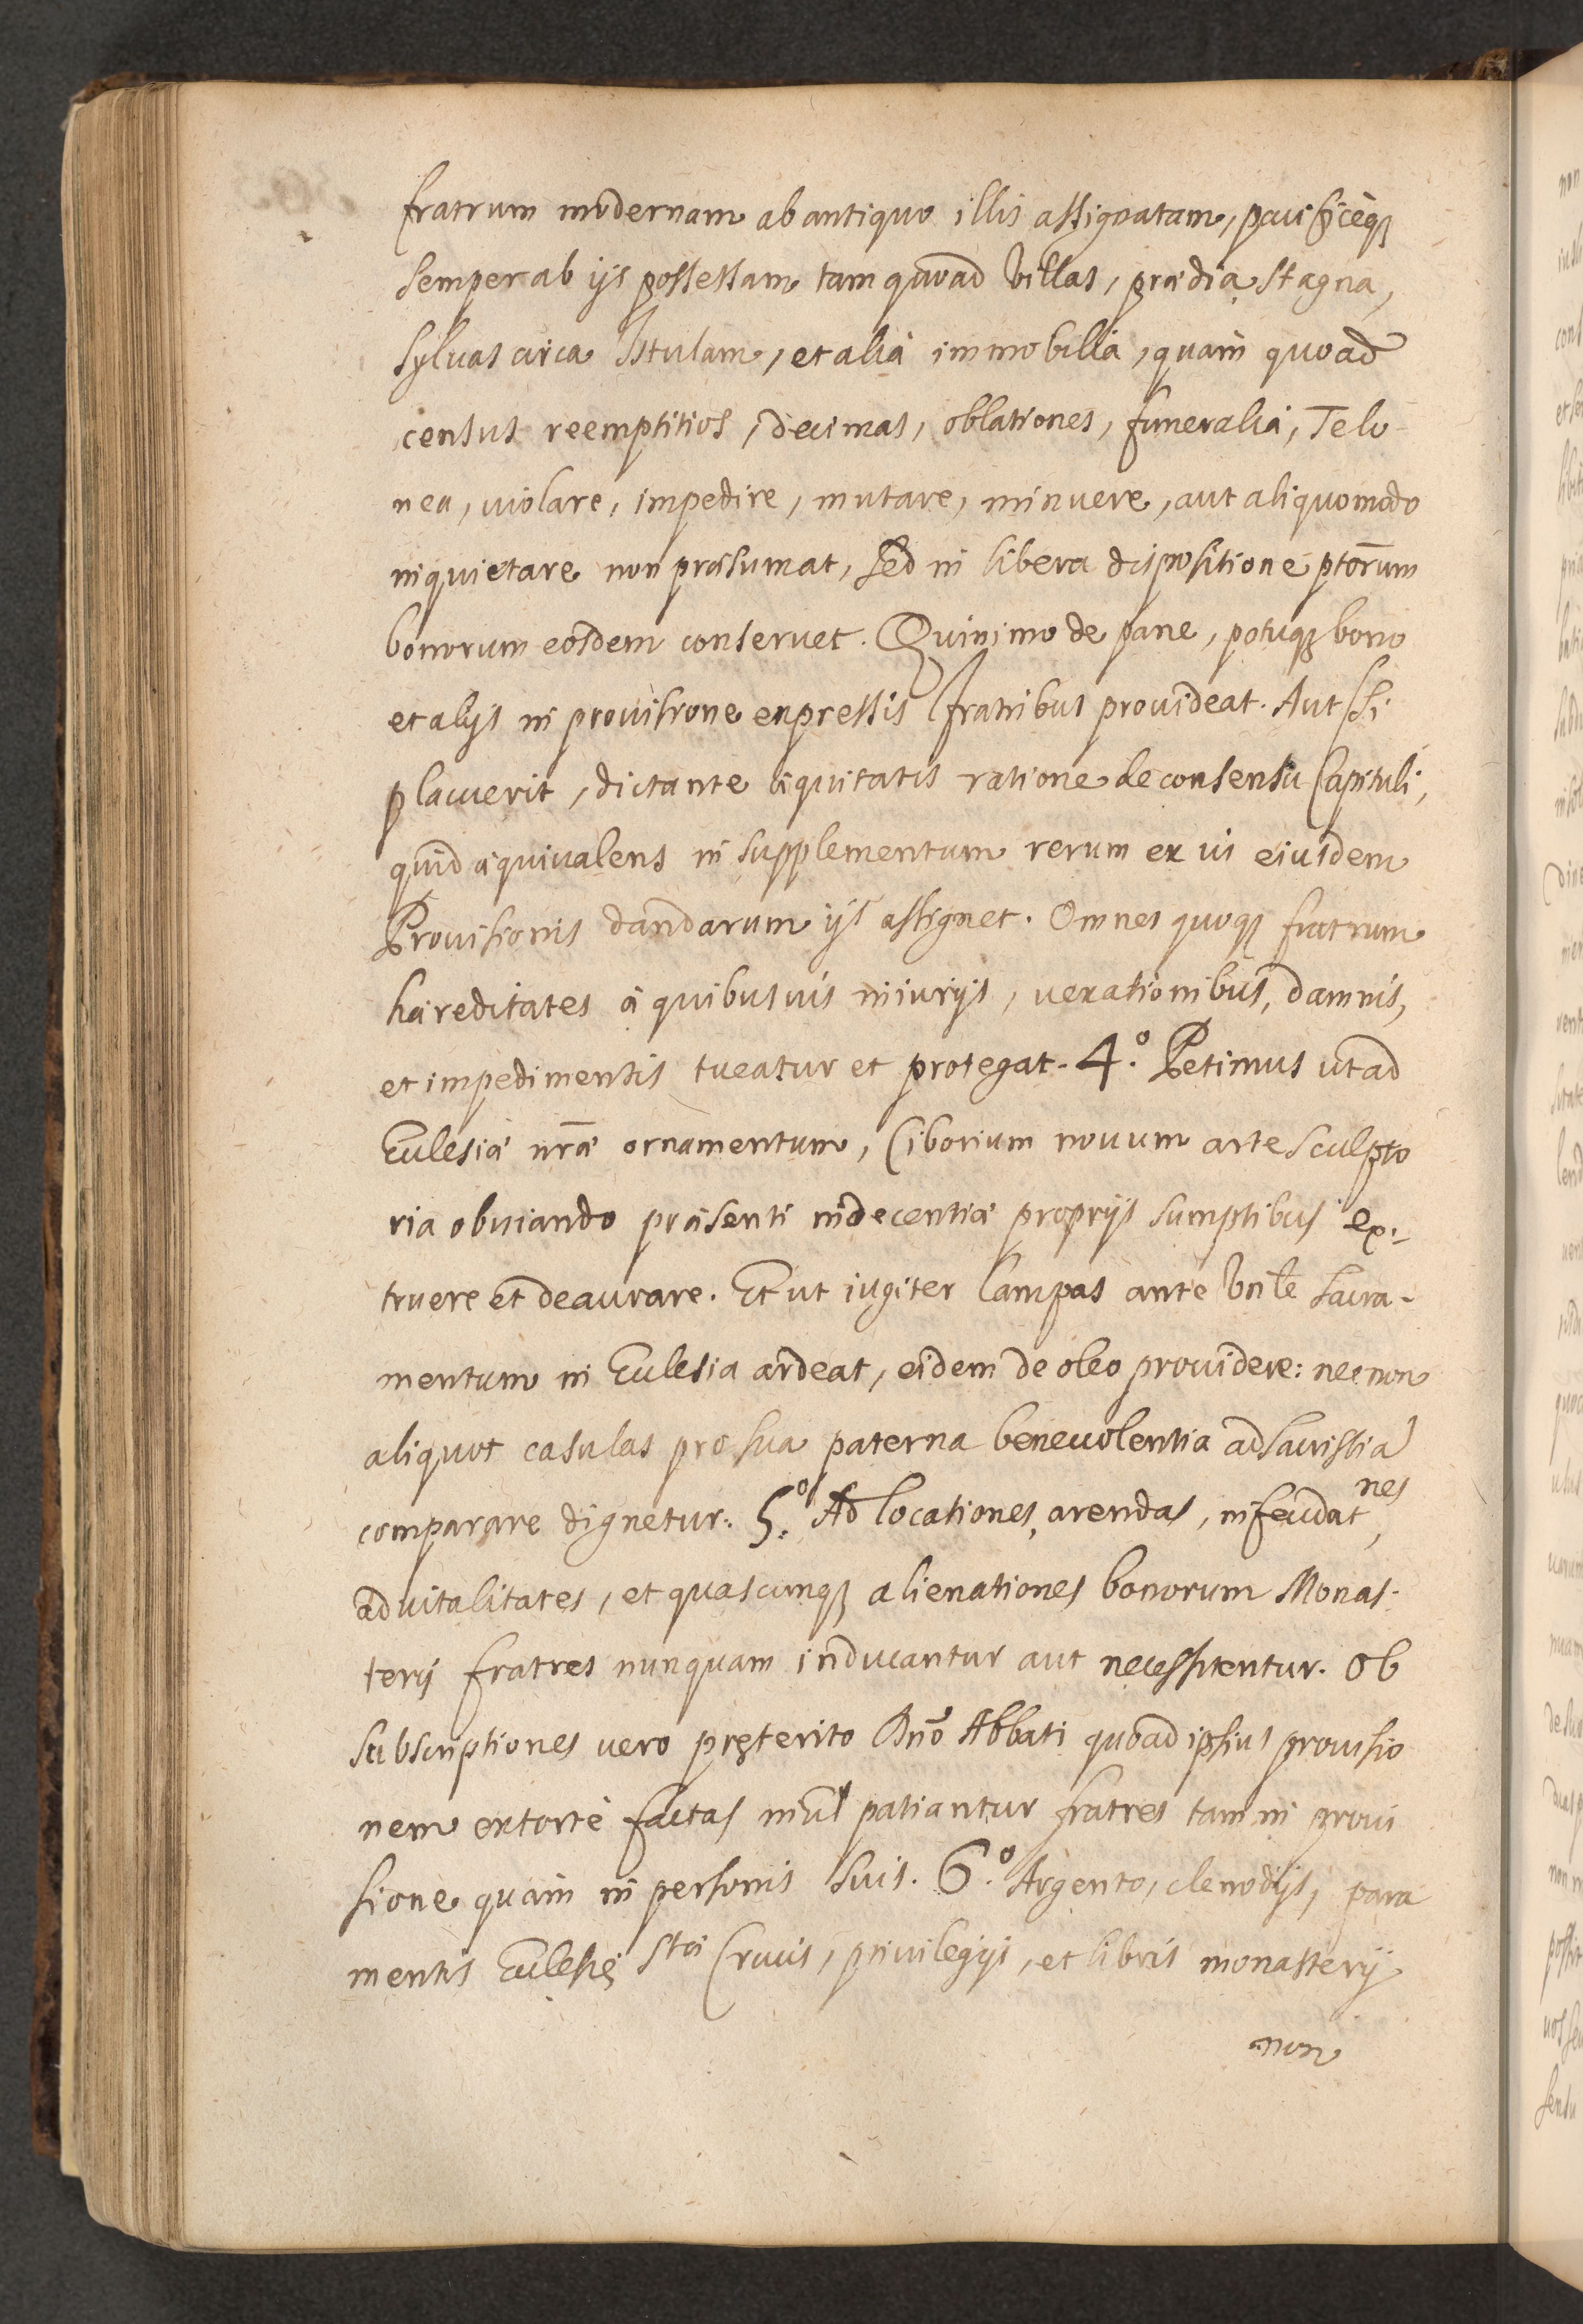 fratrum modernam ab antiquo illis assignatam, pacificèq;
semper ab ijs possessam tam quoad villas, prædia stagna,
sylvas circa Istulam, et alia immobilia, quàm quoad
census reemptitios, decimas, oblationes, funeralia, Telo
nea, violare, impedire, mutare, minuere, aut aliquomodo
inquietare non præsumat, sed in libera dispositione ptõrum
bonorum eosdem conservet. Quinimo de pane, potuq; bono
et alijs in provisione expressis fratribus provideat. Aut si
placuerit, dictante æquitatis ratione de consensu Capituli,
quid æquivalens in supplementum rerum ex vi eiusdem
Provisionis dandarum ijs assignet. Omnes quoq; fratrum
hæreditates à quibusvis iniurijs, vexationibus, damnis,
et impedimentis tueatur et protegat. 4.º Petimus ut ad
Ecclesiæ nr̃æ ornamentum, Ciborium novum arte sculpto
ria obviando præsenti indecentiæ proprijs sumptibus ex:
truere et deaurare. Et ut iugiter lampas ante Vn̄le Sacra-
mentum in Ecclesia ardeat, eidem de oleo providere: necnon
aliquot casulas pro sua paterna benevolentia ad sacristiã
comparare dignetur. 5.º Ad locationes, arendas, infeudatnes,
advitalitates, et quascunq; alienationes bonorum Monas-
terij fratres nunquam inducantur aut necessitentur. Ob
subscriptiones vero pręterito Dño Abbati quoad ipsius provisio
nem extortè factas patiantur fratres tam in provi
sione quàm in personis suis. 6.º Argento, clenodijs, para
mentis Ecclesię Stæ Crucis, privilegijs, et libris monasterij
non